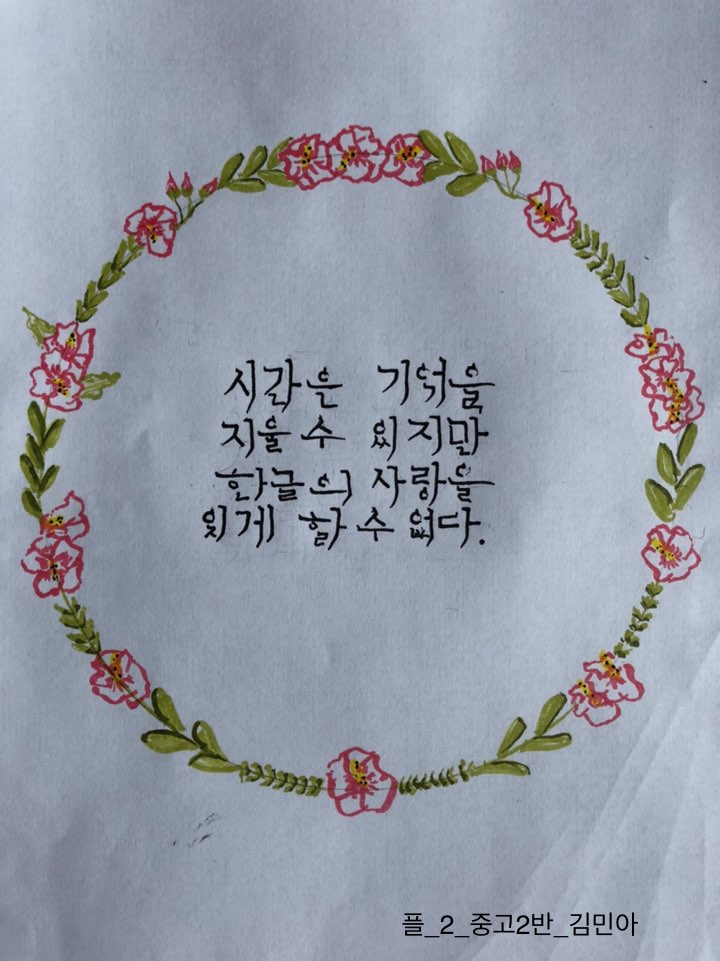 시간은 기억을
지울 수 있지만
한글의 사랑을
잊게 할 수 없다.
플_2_중고2반_김민아